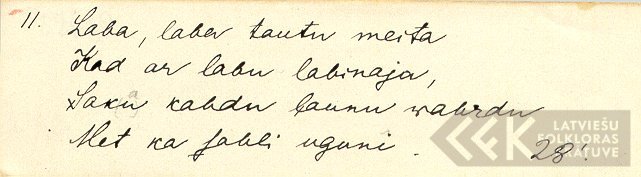 11. Laba, laba tautu meita
Kad ar labu labinaja,
Saku kahdu launu wahrdu
Met ka sahli uguni.
28!
LATVIEŠU
FOLKLORAS
KRĀTUVE